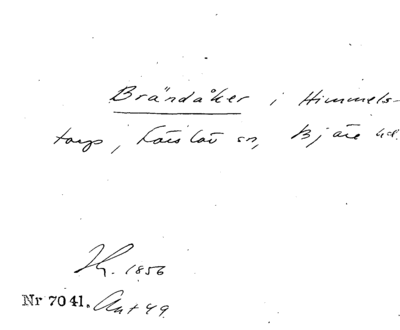 Brändåker i Himmels-
torp, Förslöv sn, Bjäre hd.
1856
Nr 7041. Ant 49